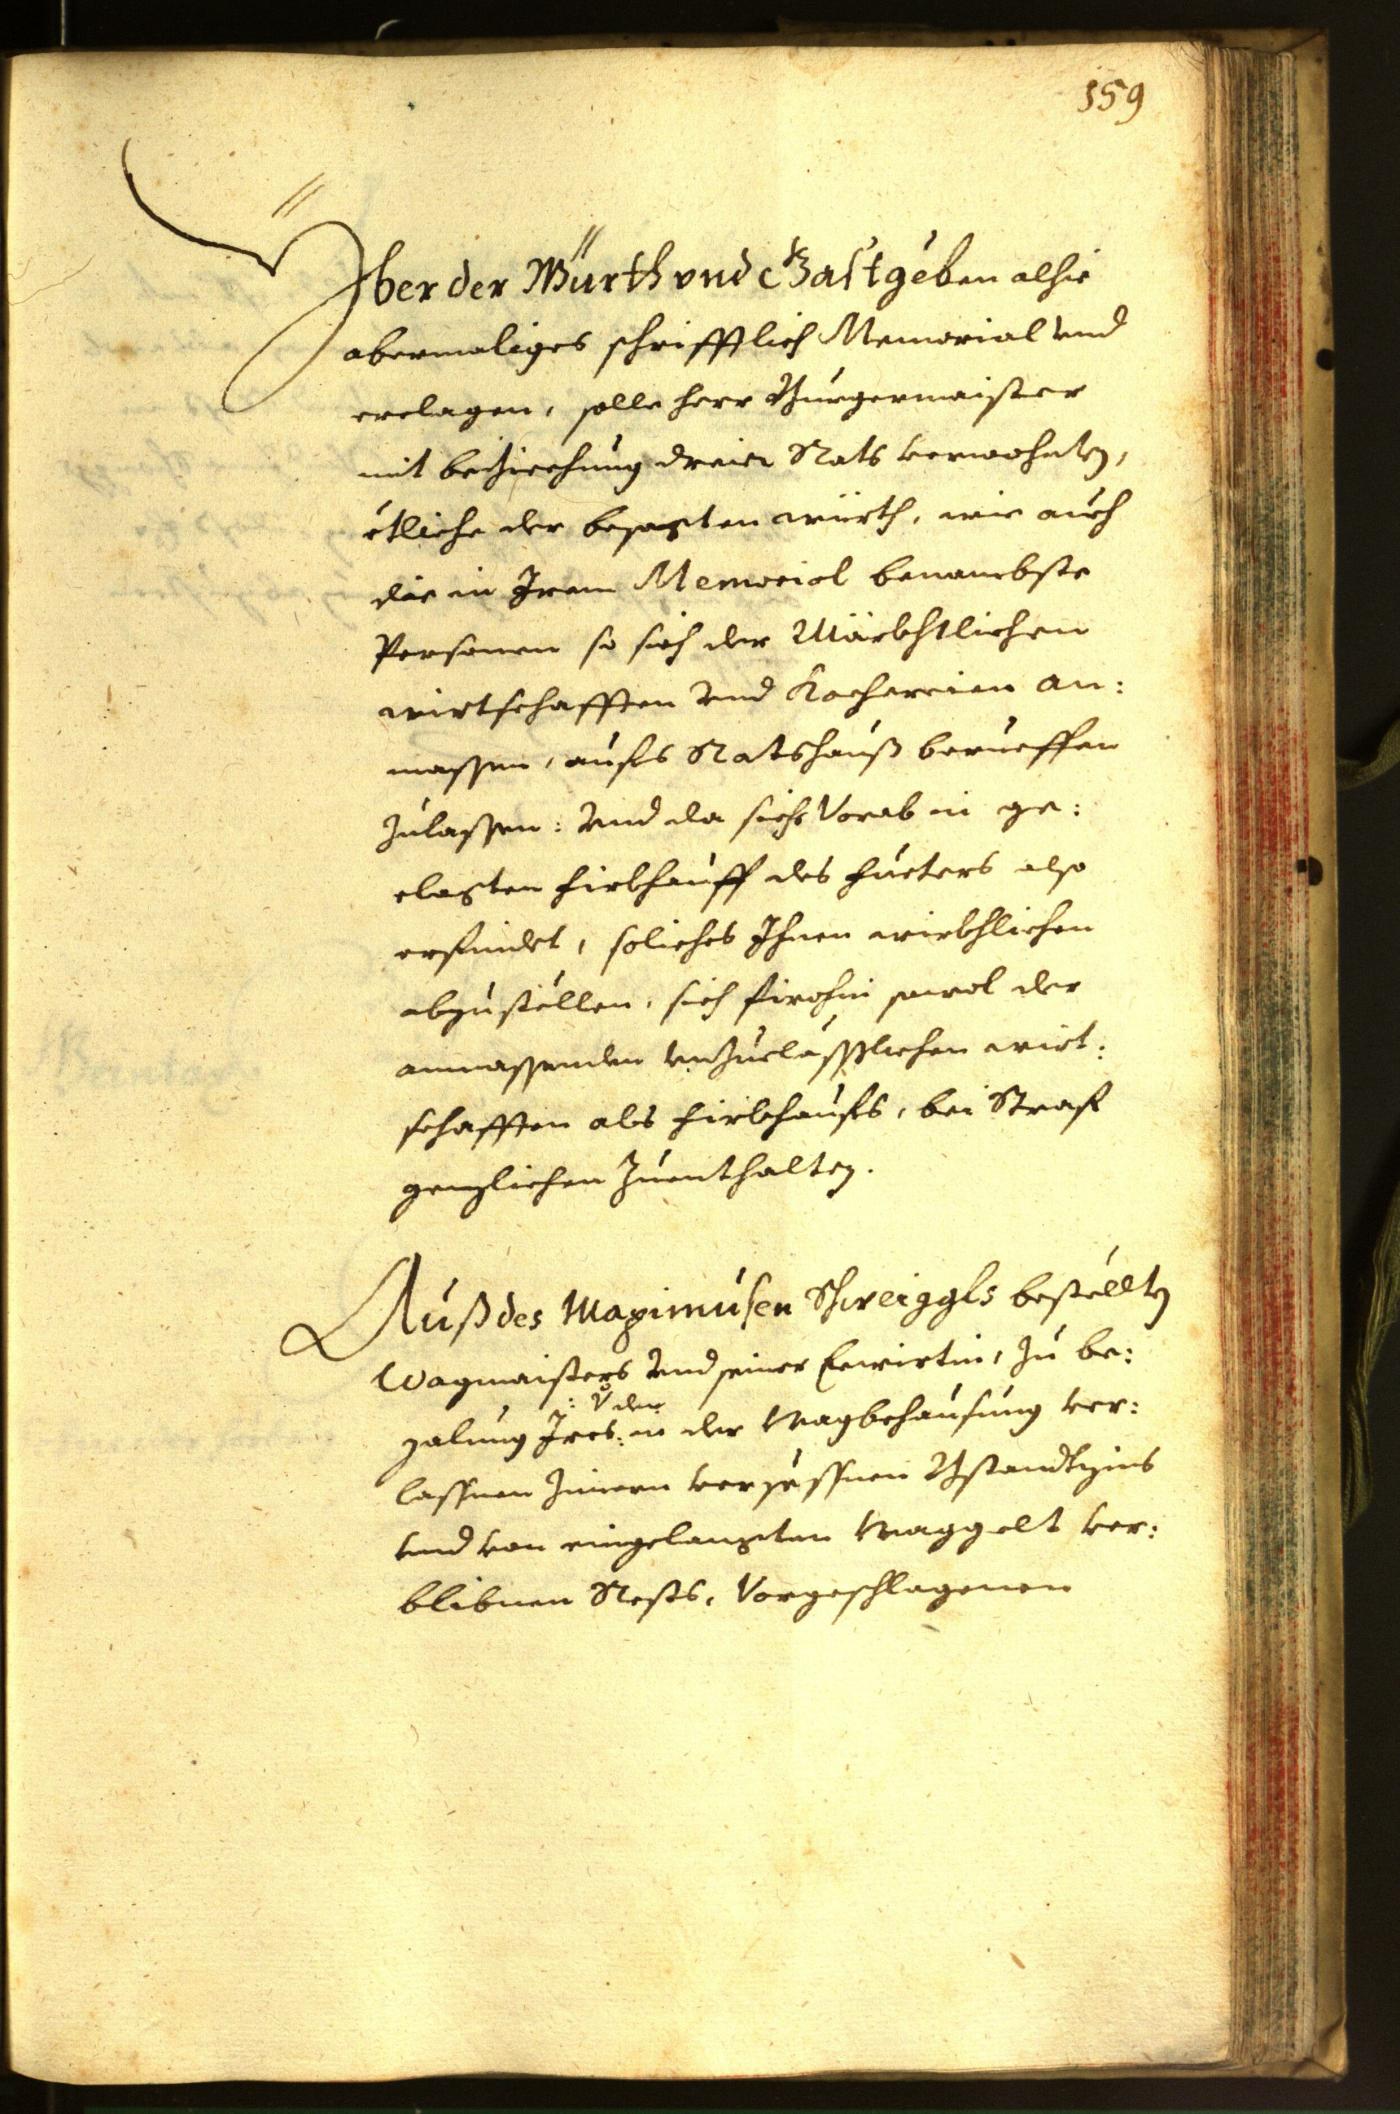 159
Yber der Würth vnd Gastgeben alhie
abermaliges schrifftlich Memorial vnd
erclagen, solle herr Burgermaister
mit beiziechung dreier Rats verwohnten,
etliche der besagten würth, wie auch
die in Irem Memorial benambste
Personen so sich der Märckhtlichen
wirtschafften vnd Kochereien an:
massen, aufs Ratshauß berueffen
zulassen: vnd da sichs Vorab in ge:
clagten firkhauff des fueters also
erfindet, soliches Ihnen wirckhlichen
abzustellen, sich firohin sowol der
anmassenden vnzuelässlichen wirt:
schafften als firkhaufs, bei Straf
genzlichen zuenthalten.
Auß des Maximusen Schweiggls bestellten
Wagmaisters vnd seiner Eewirtin, zu be:
: V den
zalung Ires: in der Wagbehausung ver:
lassnen Zimern versessnen Bstandtzins
vnd von eingelangten Waggelt ver:
blibnen Rests, Vorgeschlagenen